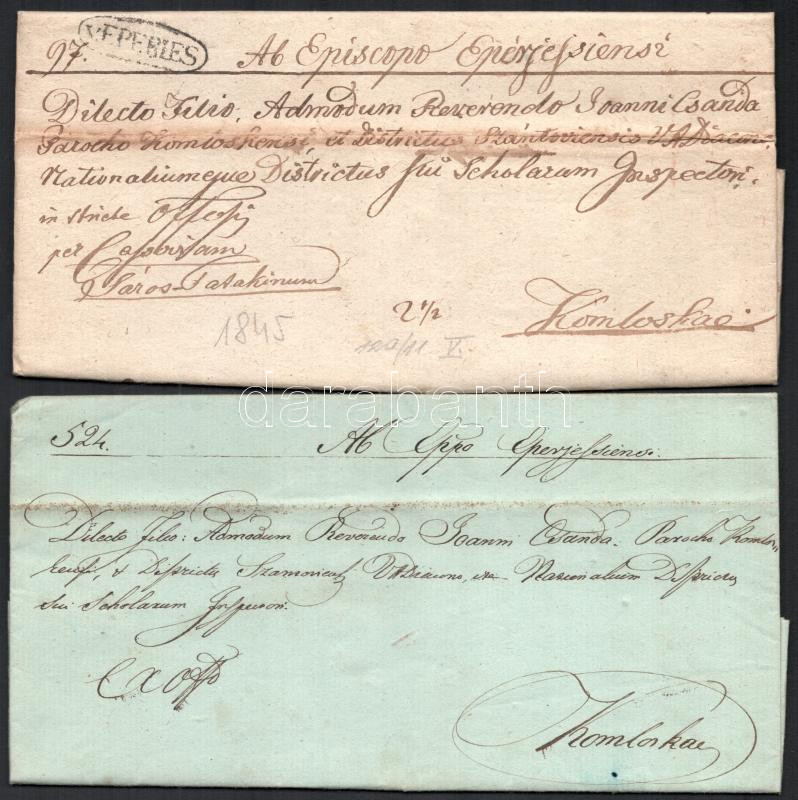 V. EPERIES
97. Ab Episcopo Eperjessiensi
Dilecto Filio, Admodum Reverendo Joanni Csanda
Parocho Komloskensi, et Districtus Szántoviensis V. A. Diacono,
Nationaliumque Districtus sui Scholarum Inspectori.
in stricte Offissi
per Cassoviam
Sáros-Patakinum
2 1/2
Komloskae
1845
V.
darabanth
524. Ab Eppo Eperjessiensi.
Dilecto Filio: Admodum Reverendo Joanni Csanda. Parocho Komlos-
kensi, & Districtus V. A. Diacono, Nationalium Districtus
sui Scholarum Inspectori.
Ex offo
Komloskae